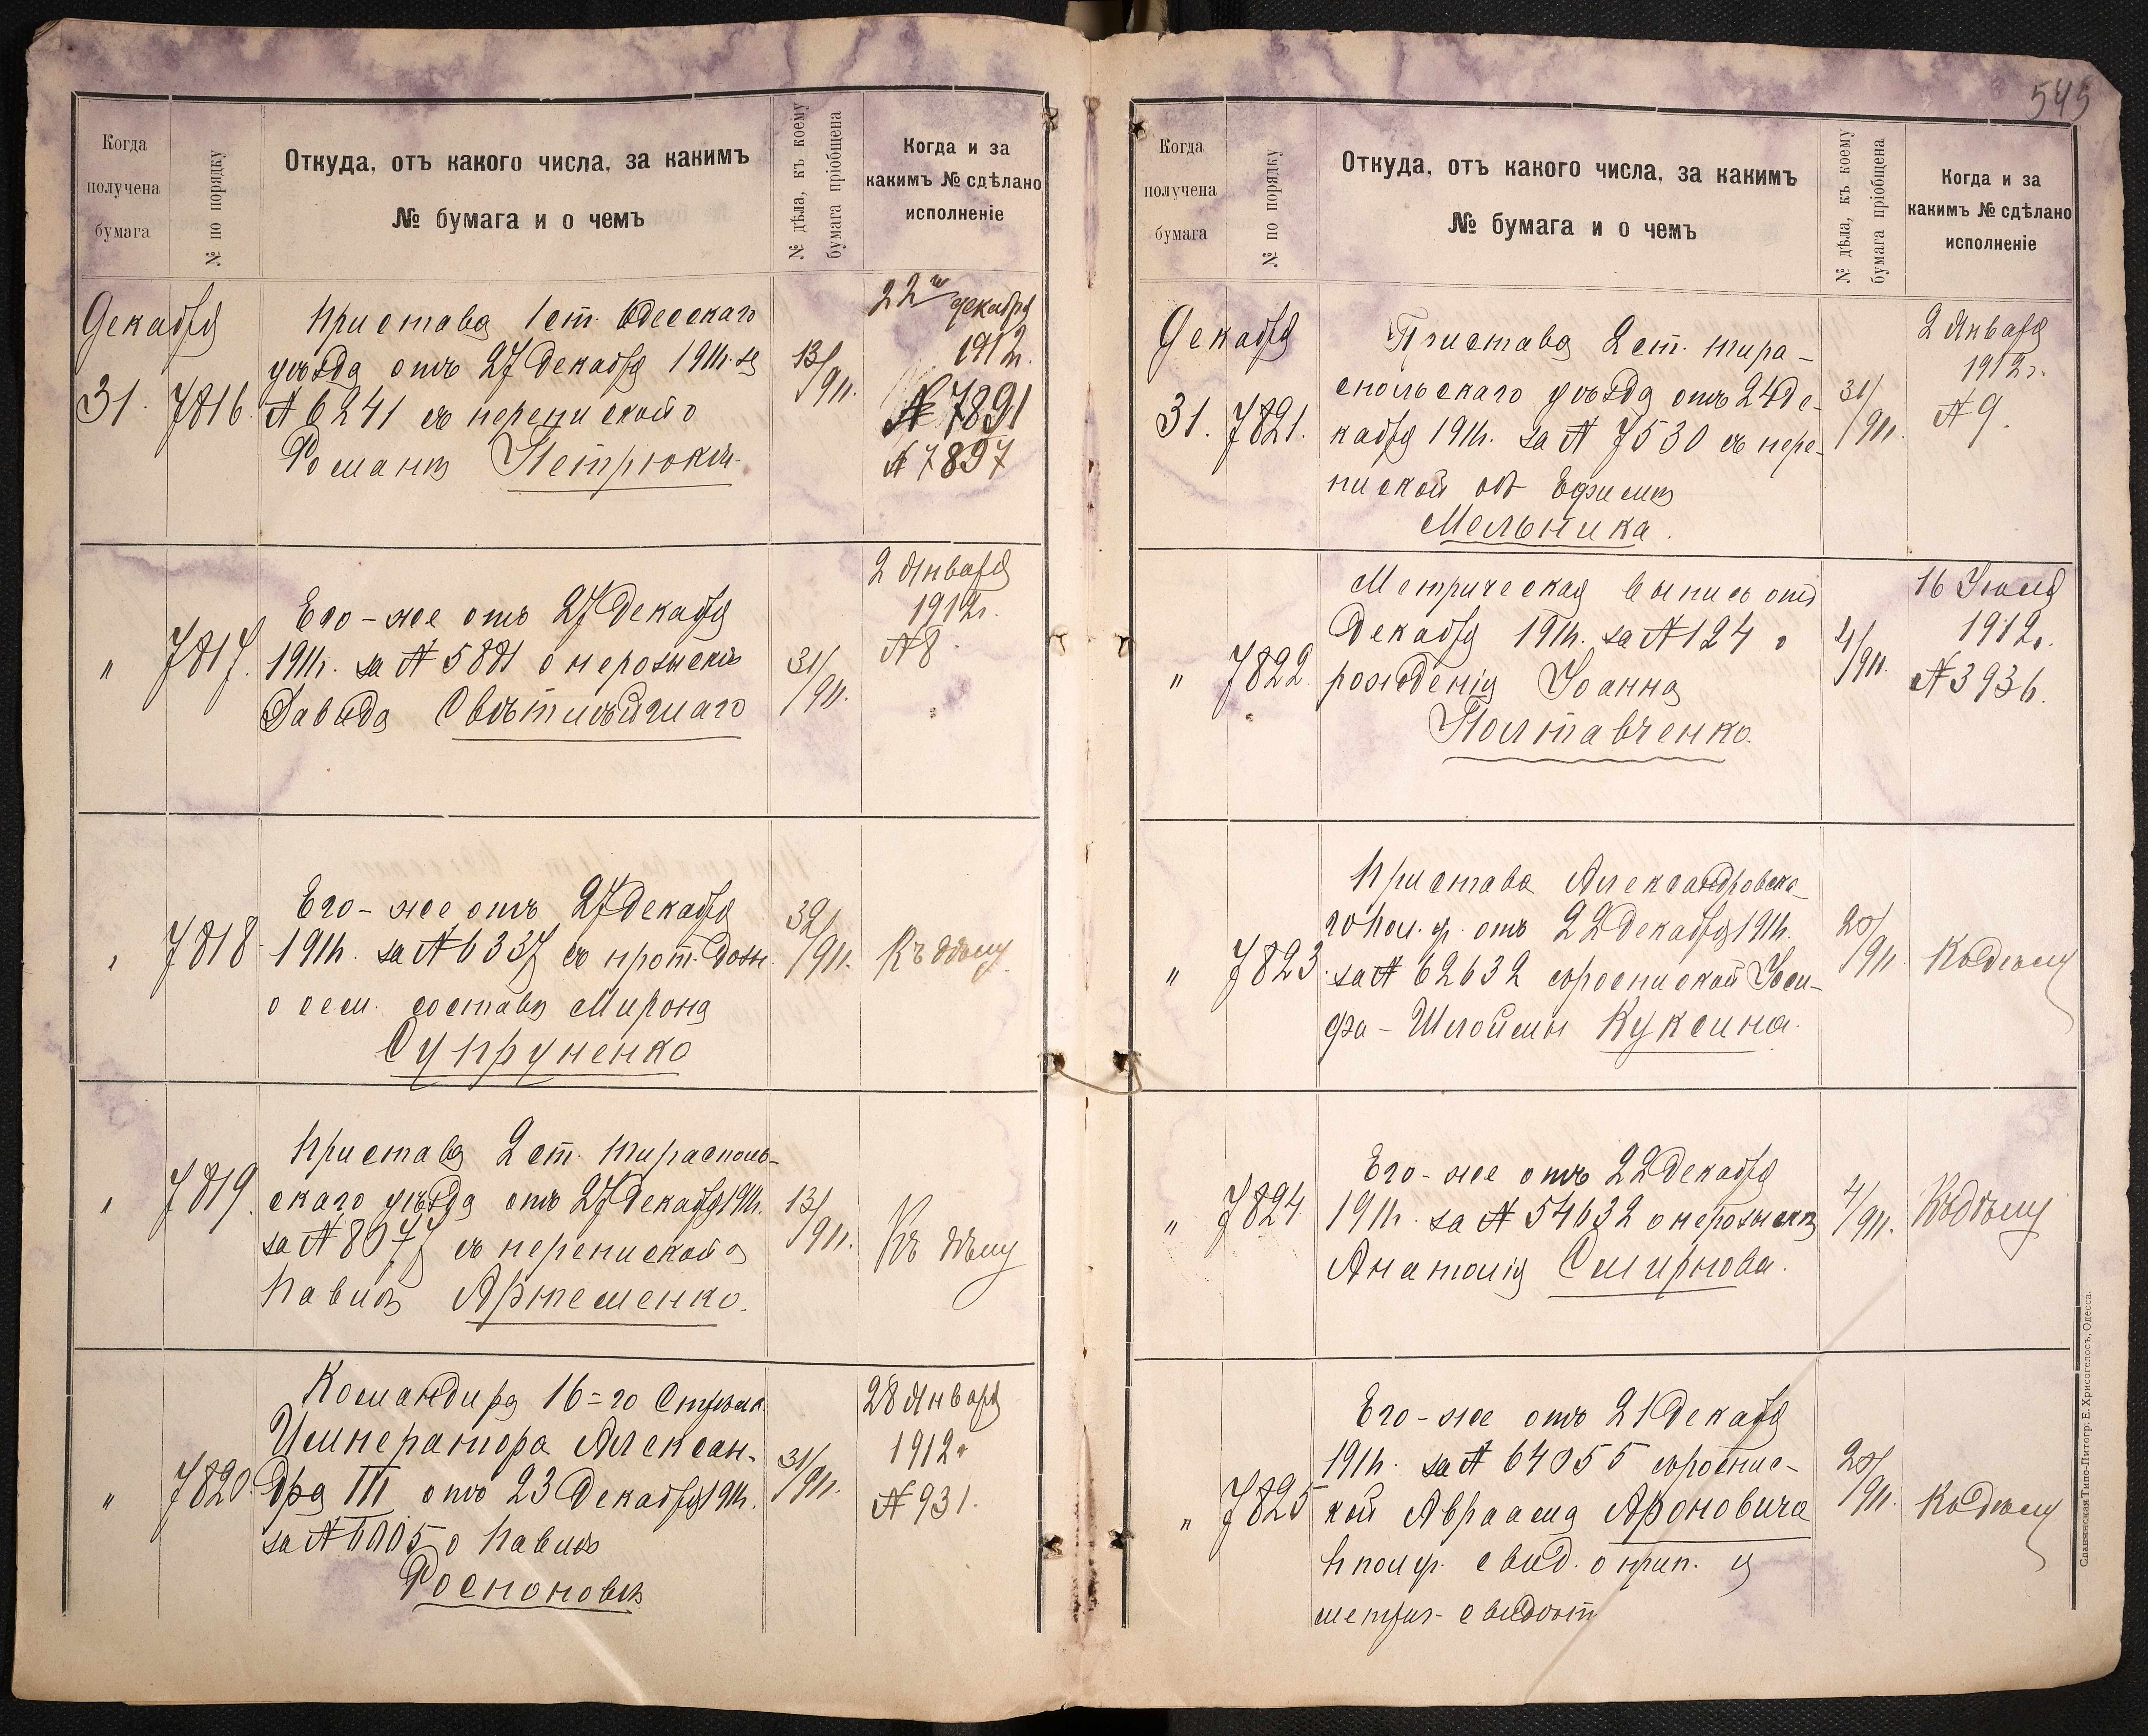 545
Когда
получена
бумага
№ по порядку
Откуда, отъ какого числа, за какимъ
№ бумага и о чемъ
№ дѣла, къ коему
бумага пріобщена
Когда и за
какимъ № сдѣлано
исполненіе
Декабря
31.
7816.
Пристава 1 ст. Одесскаго
уѣзда отъ 27 Декабря 1911г. за
№ 6241 съ перепиской о
Романѣ
13/911.
22го декабря
1912г.
№ 7891
№ 7897
"
7817.
Его-же отъ 27 Декабря
1911г. за № 5881 о нерозыскѣ
Давида
31/911.
2 Января
1912г.
№ 8.
"
7818.
Его-же отъ 27 Декабря
1911г. за № 6337 съ прот. дозн.
о сем. составѣ Мирона
Супруненко
32/911.
Къ дѣлу
"
7819.
Пристава 2 ст. Тирасполь-
скаго уѣзда отъ 27 Декабря 1911г.
за № 8077 съ перепиской о
Павлѣ Артеменко.
13/911.
Къ дѣлу
"
7820.
Командира 16=го Стрѣлк.
Императора Алексан-
дра III отъ 23 Декабря 1911г.
за № о Павлѣ
Роспоповѣ
31/911.
28 Января
1912г
№ 931.
Когда
получена
бумага
№ по порядку
Откуда, отъ какого числа, за какимъ
№ бумага и о чемъ
№ дѣла, къ коему
бумага пріобщена
Когда и за
какимъ № сдѣлано
исполненіе
Декабря
31.
7821.
Пристава 2 ст. Тира-
спольскаго уѣзда отъ 24 Де-
кабря 1911г. за № 7530 съ пере-
пиской объ Ефимѣ
Мельника.
31/911.
2 Января
1912г.
№ 9.
"
7822.
Метрическая выпись отъ
Декабря 1911г. за № 124 о
рожденіи Іоанна
Полтавченко.
4/911.
16 Іюля
1912г.
№ 3936.
"
7823.
Пристава Александровска-
го Пол. у. отъ 22 Декабря 1911г.
за № 62632 съ роспиской Іоси-
фа-Шлоймы Куксина.
20/911.
Къ дѣлу
"
7824
Его-же отъ 22 Декабря
1911г. за № 54632 о нерозыскѣ
Анатолія Смирнова.
4/911.
Къ дѣлу
"
7825
Его-же отъ 21 Декабря
1911г. за № 64055 съ роспис-
кой Авраама Ароновича
въ пол. свид. о прип. и
метрич- свидѣт
20/911.
Къ дѣлу
Славянская Типо-Литогр. Е. Хрисогелосъ, Одесса.